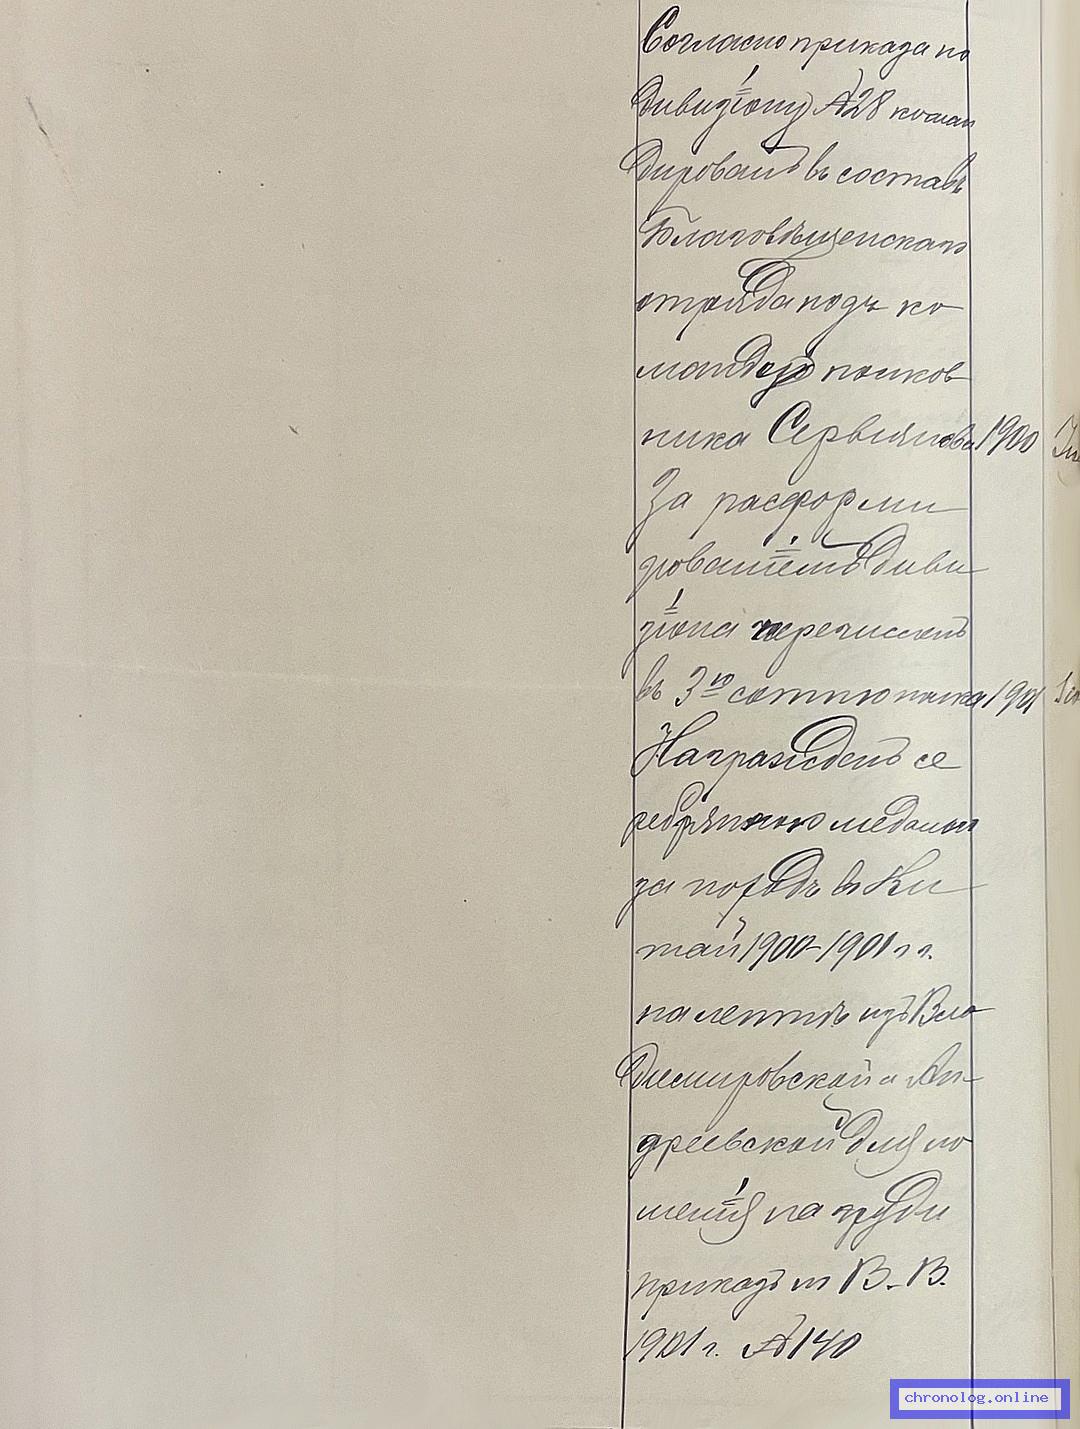 Согласно приказа по
дивизіону №28 коман
дированъ въ составъ
Благовѣщенскаго
отряда подъ ко
мандою полков
ника Сервіянова 1900
За расформи
рованіемъ диви
зіона перечисленъ
въ 3ю сотню полка 1901
Награжденъ се
ребряною медалью
за походъ въ Ки
тай 1900-1901 гг.
на лентѣ изъ Вла
димировской и Ан-
дреевской для но
шенія на груди
приказъ по В. В.
1901 г. №140
chronolog.online